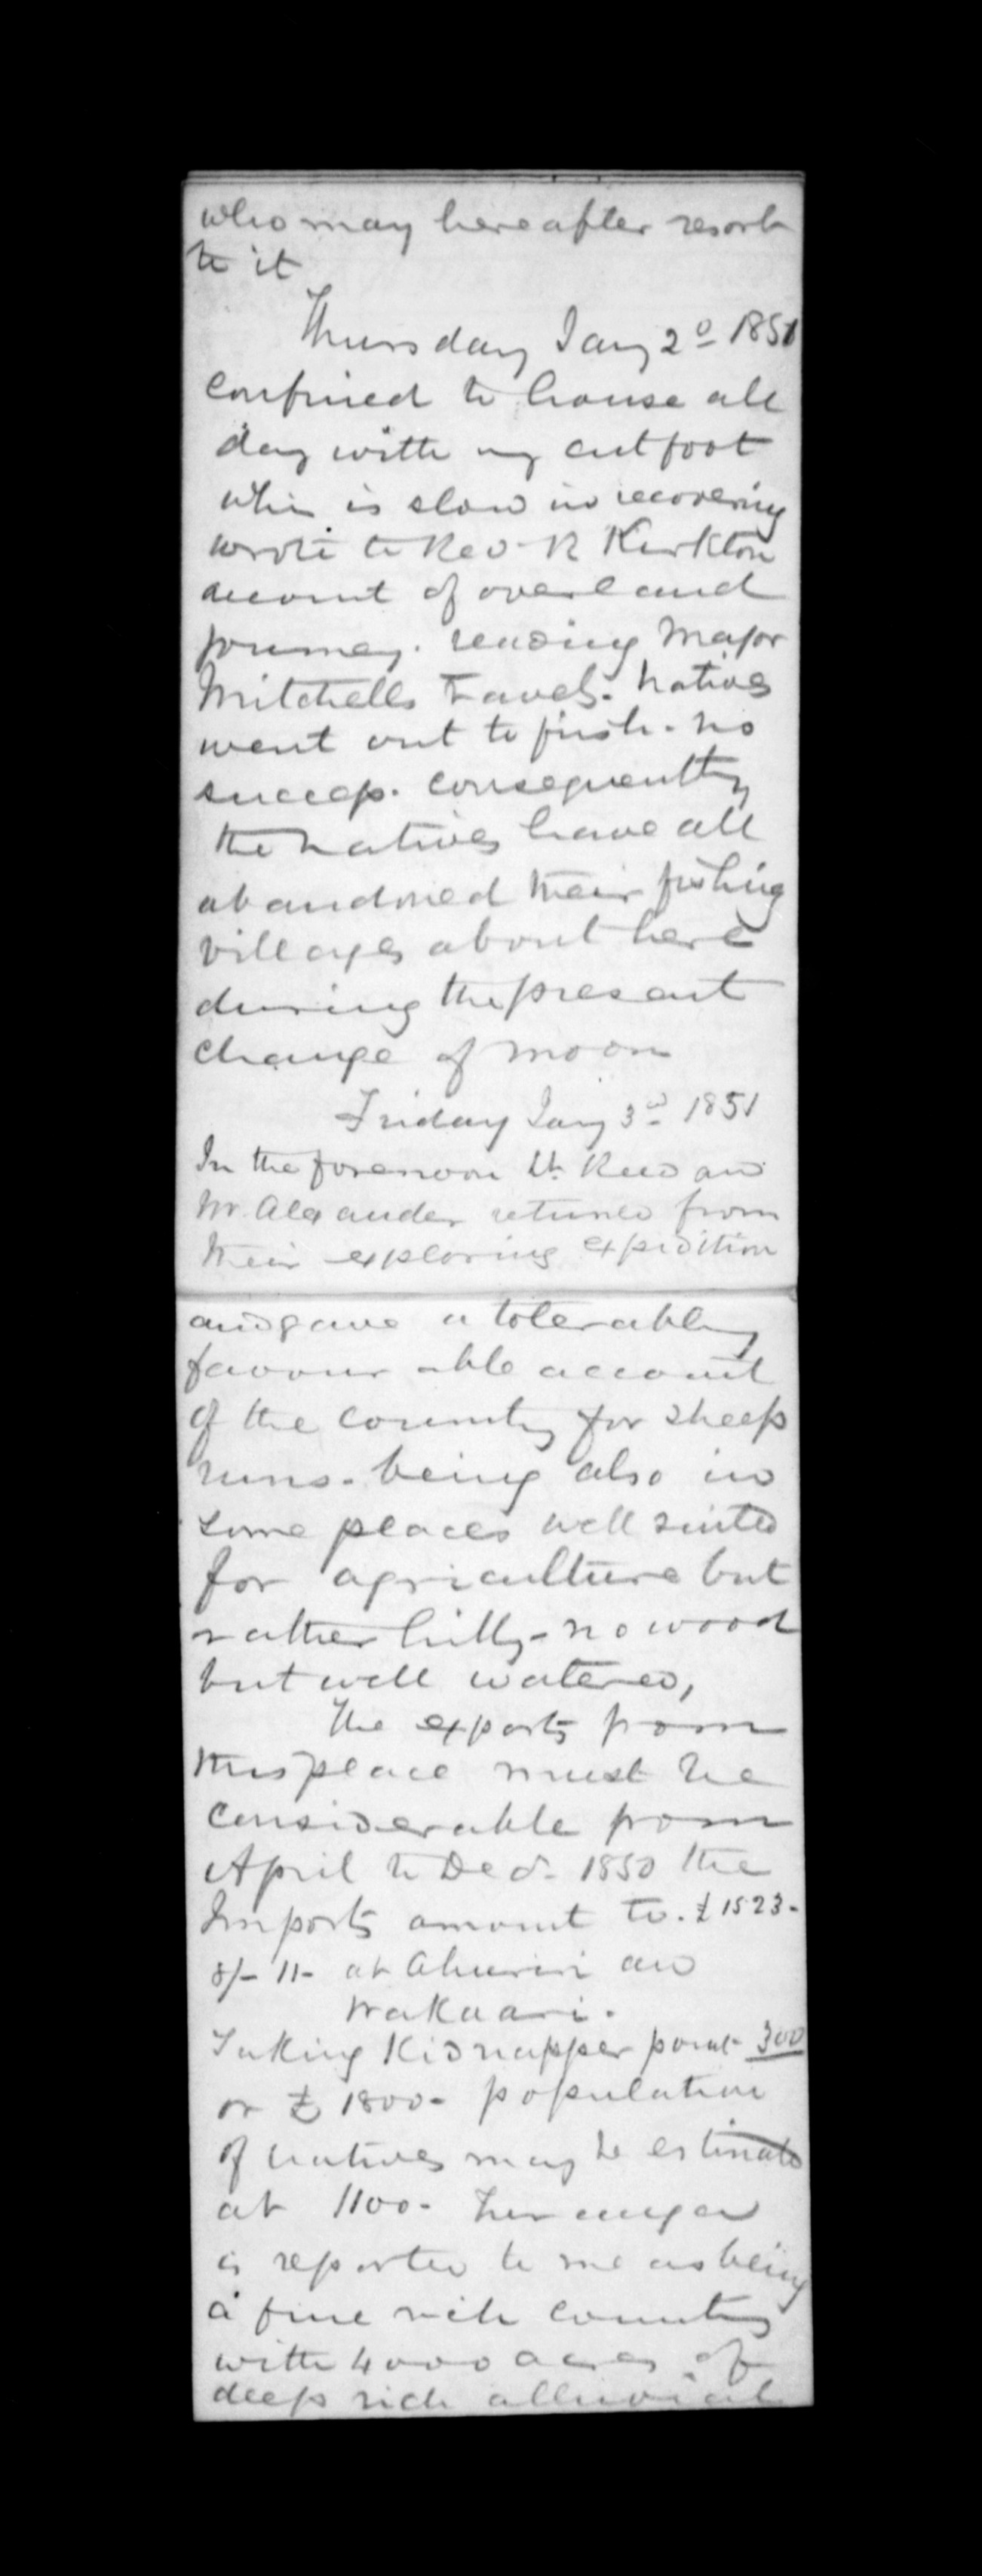 who may hereafter resort
to it
Thursday Jany 2d 1851
Confined to house all
day with my cut foot
whic is slow in recovering
wrote to Rev. R Kirkton
account of overland
journey. reading Major
Mitchells Travels. Natives
went out to fish. no
success. Consequently
the natives have all
abandoned their fishing
villages about here
during the present
change of moon
Friday Jany 3d 1851
In the forenoon Lt. and
Mr. Alexander returned from
their exploring expedition
and gave a tolerably
favourable account
of the country for sheep
runs. being also in
some places well suited
for agriculture but
rather hilly - no wood
but well watered,
The exports from
this place must be
considerable from
April to Decr. 1850 the
Imports amount to. £1523-
8/- 11- at Ahuriri and
Wakaari.
Taking Kidnapper point 300
or £ 1800- population
of natives may be estimated
at 1100-
is reported to me as being
a fine rich country
with 4000 acres of
deep rich alluvial